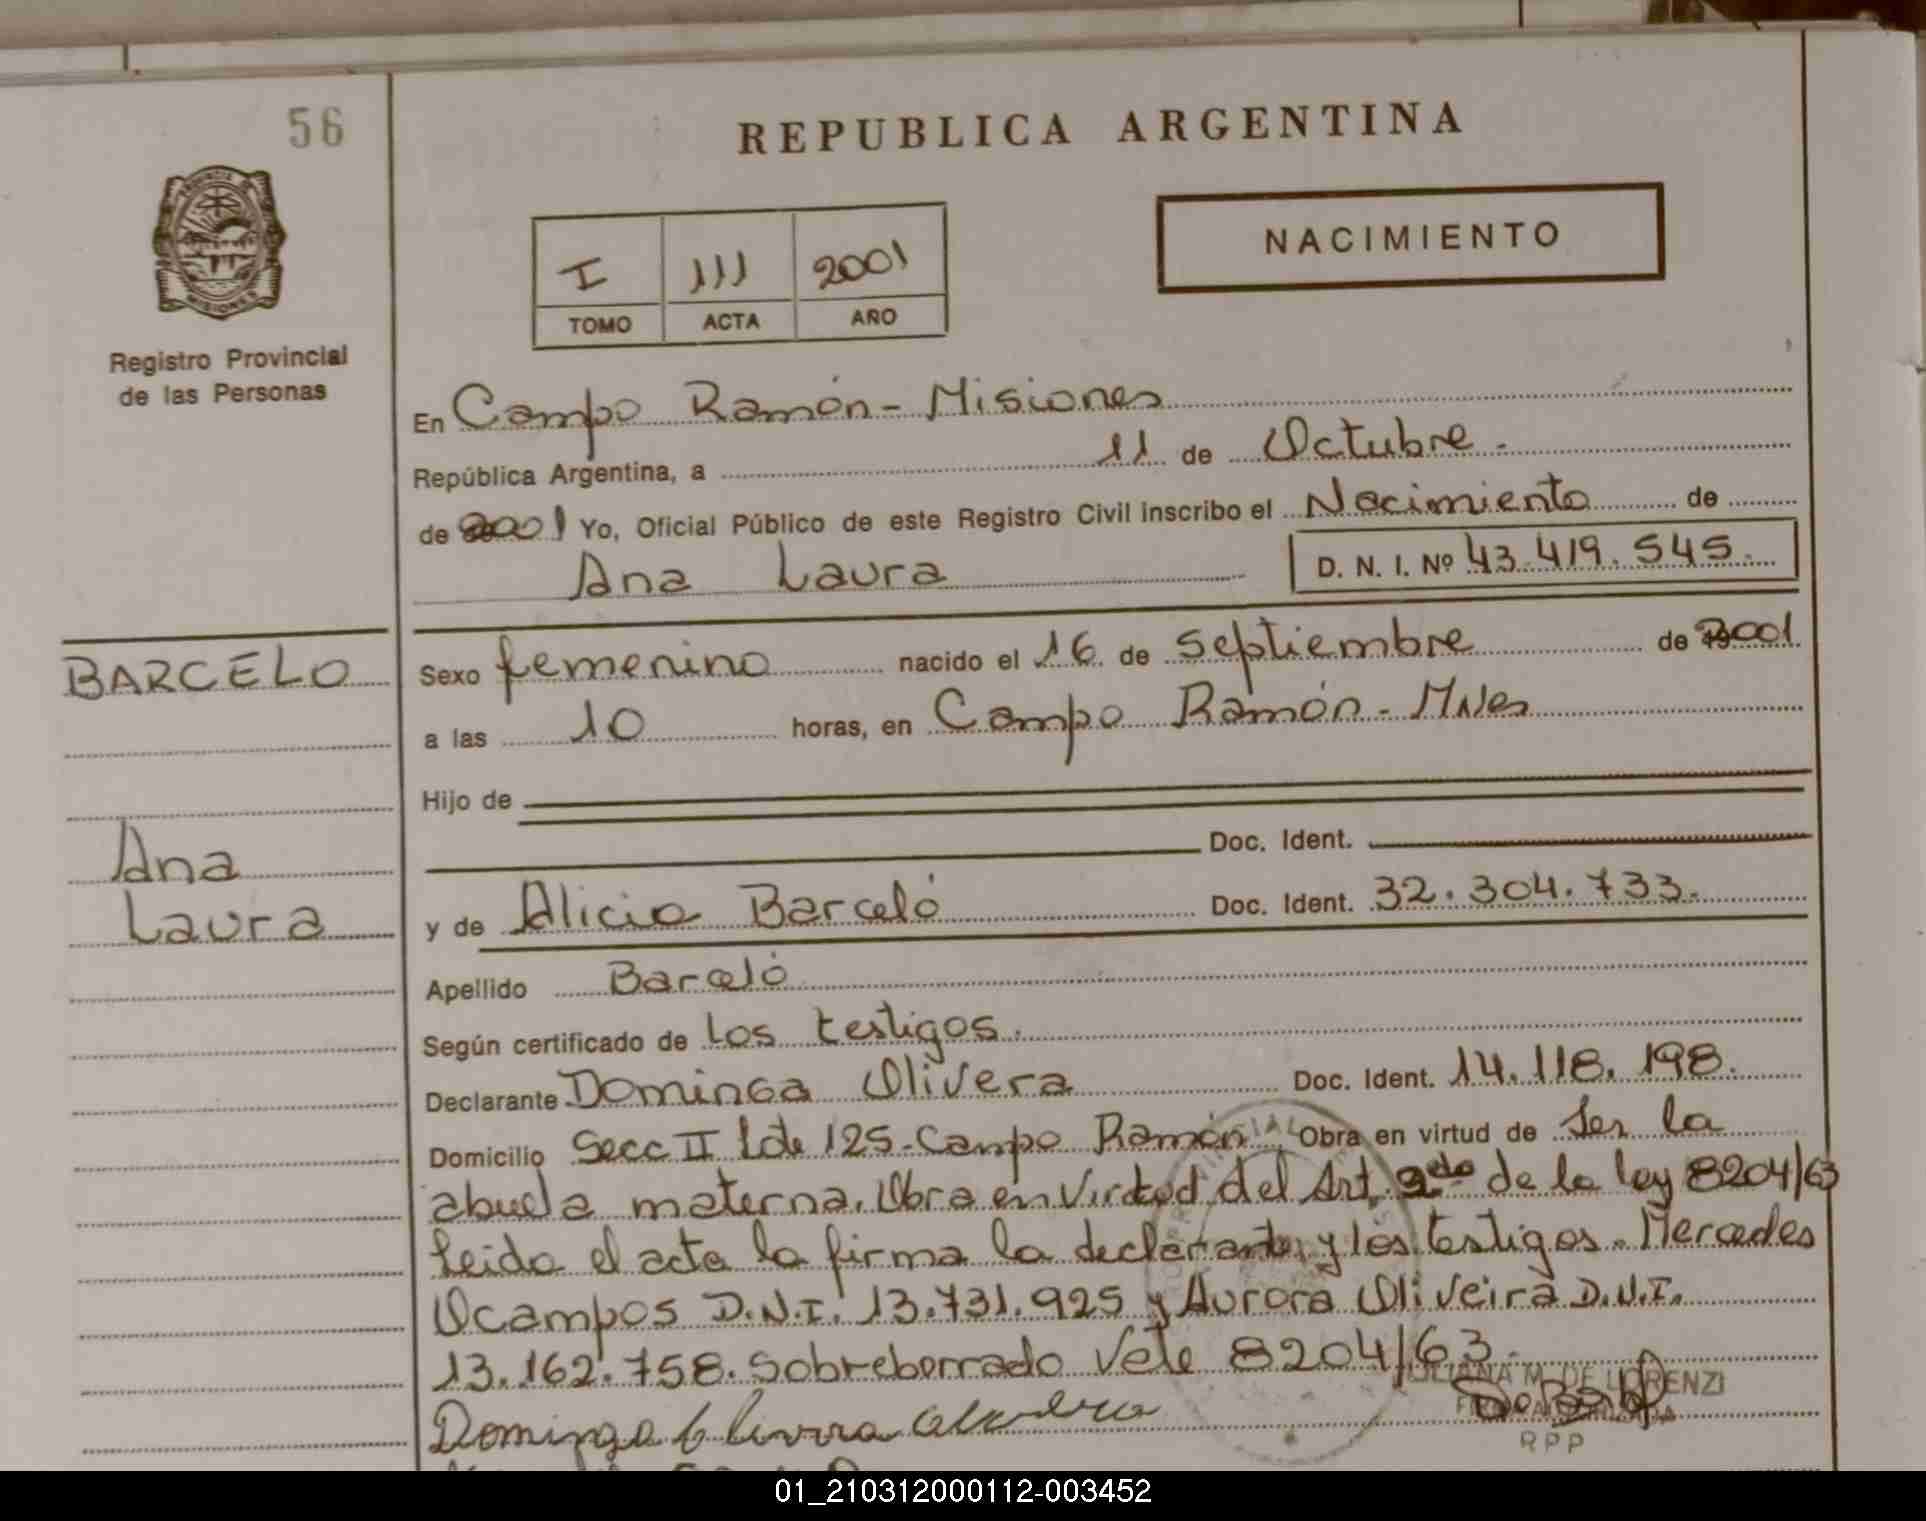 56
REPUBLICA ARGENTINA
PROVINCIA DE
MISIONES
NACIMIENTO
I 111 2001
TOMO ACTA AÑO
Registro Provincial
de las Personas
En Campo Ramón - Misiones
República Argentina, a 11 de Octubre.
de 2001 Yo, Oficial Público de este Registro Civil inscribo el Nacimiento de
Ana Laura D. N. I. Nº 43.419.545.
BARCELO
Ana
Laura
Sexo femenino nacido el 16 de Septiembre de 2001
a las 10 horas, en Campo Ramón - Mnes
Hijo de
Doc. Ident.
y de Alicia Barceló Doc. Ident. 32.304.733.
Apellido Barceló
Según certificado de los testigos.
Declarante Dominga Olivera Doc. Ident. 14.118.198.
Domicilio Secc II lote 125 - Campo Ramón Obra en virtud de Ser la
abuela materna. Obra en Virtud del Art. 2do de la ley 8204/63
leido el acta la firma la declarante y los testigos. Mercedes
Ocampos D.N.I. 13.731.925 y Aurora Oliveira D.N.I.
13.162.758. Sobreborrado Vale 8204/63.
JULIANA M. DE LORENZI
Dominga
RPP
01_210312000112-003452